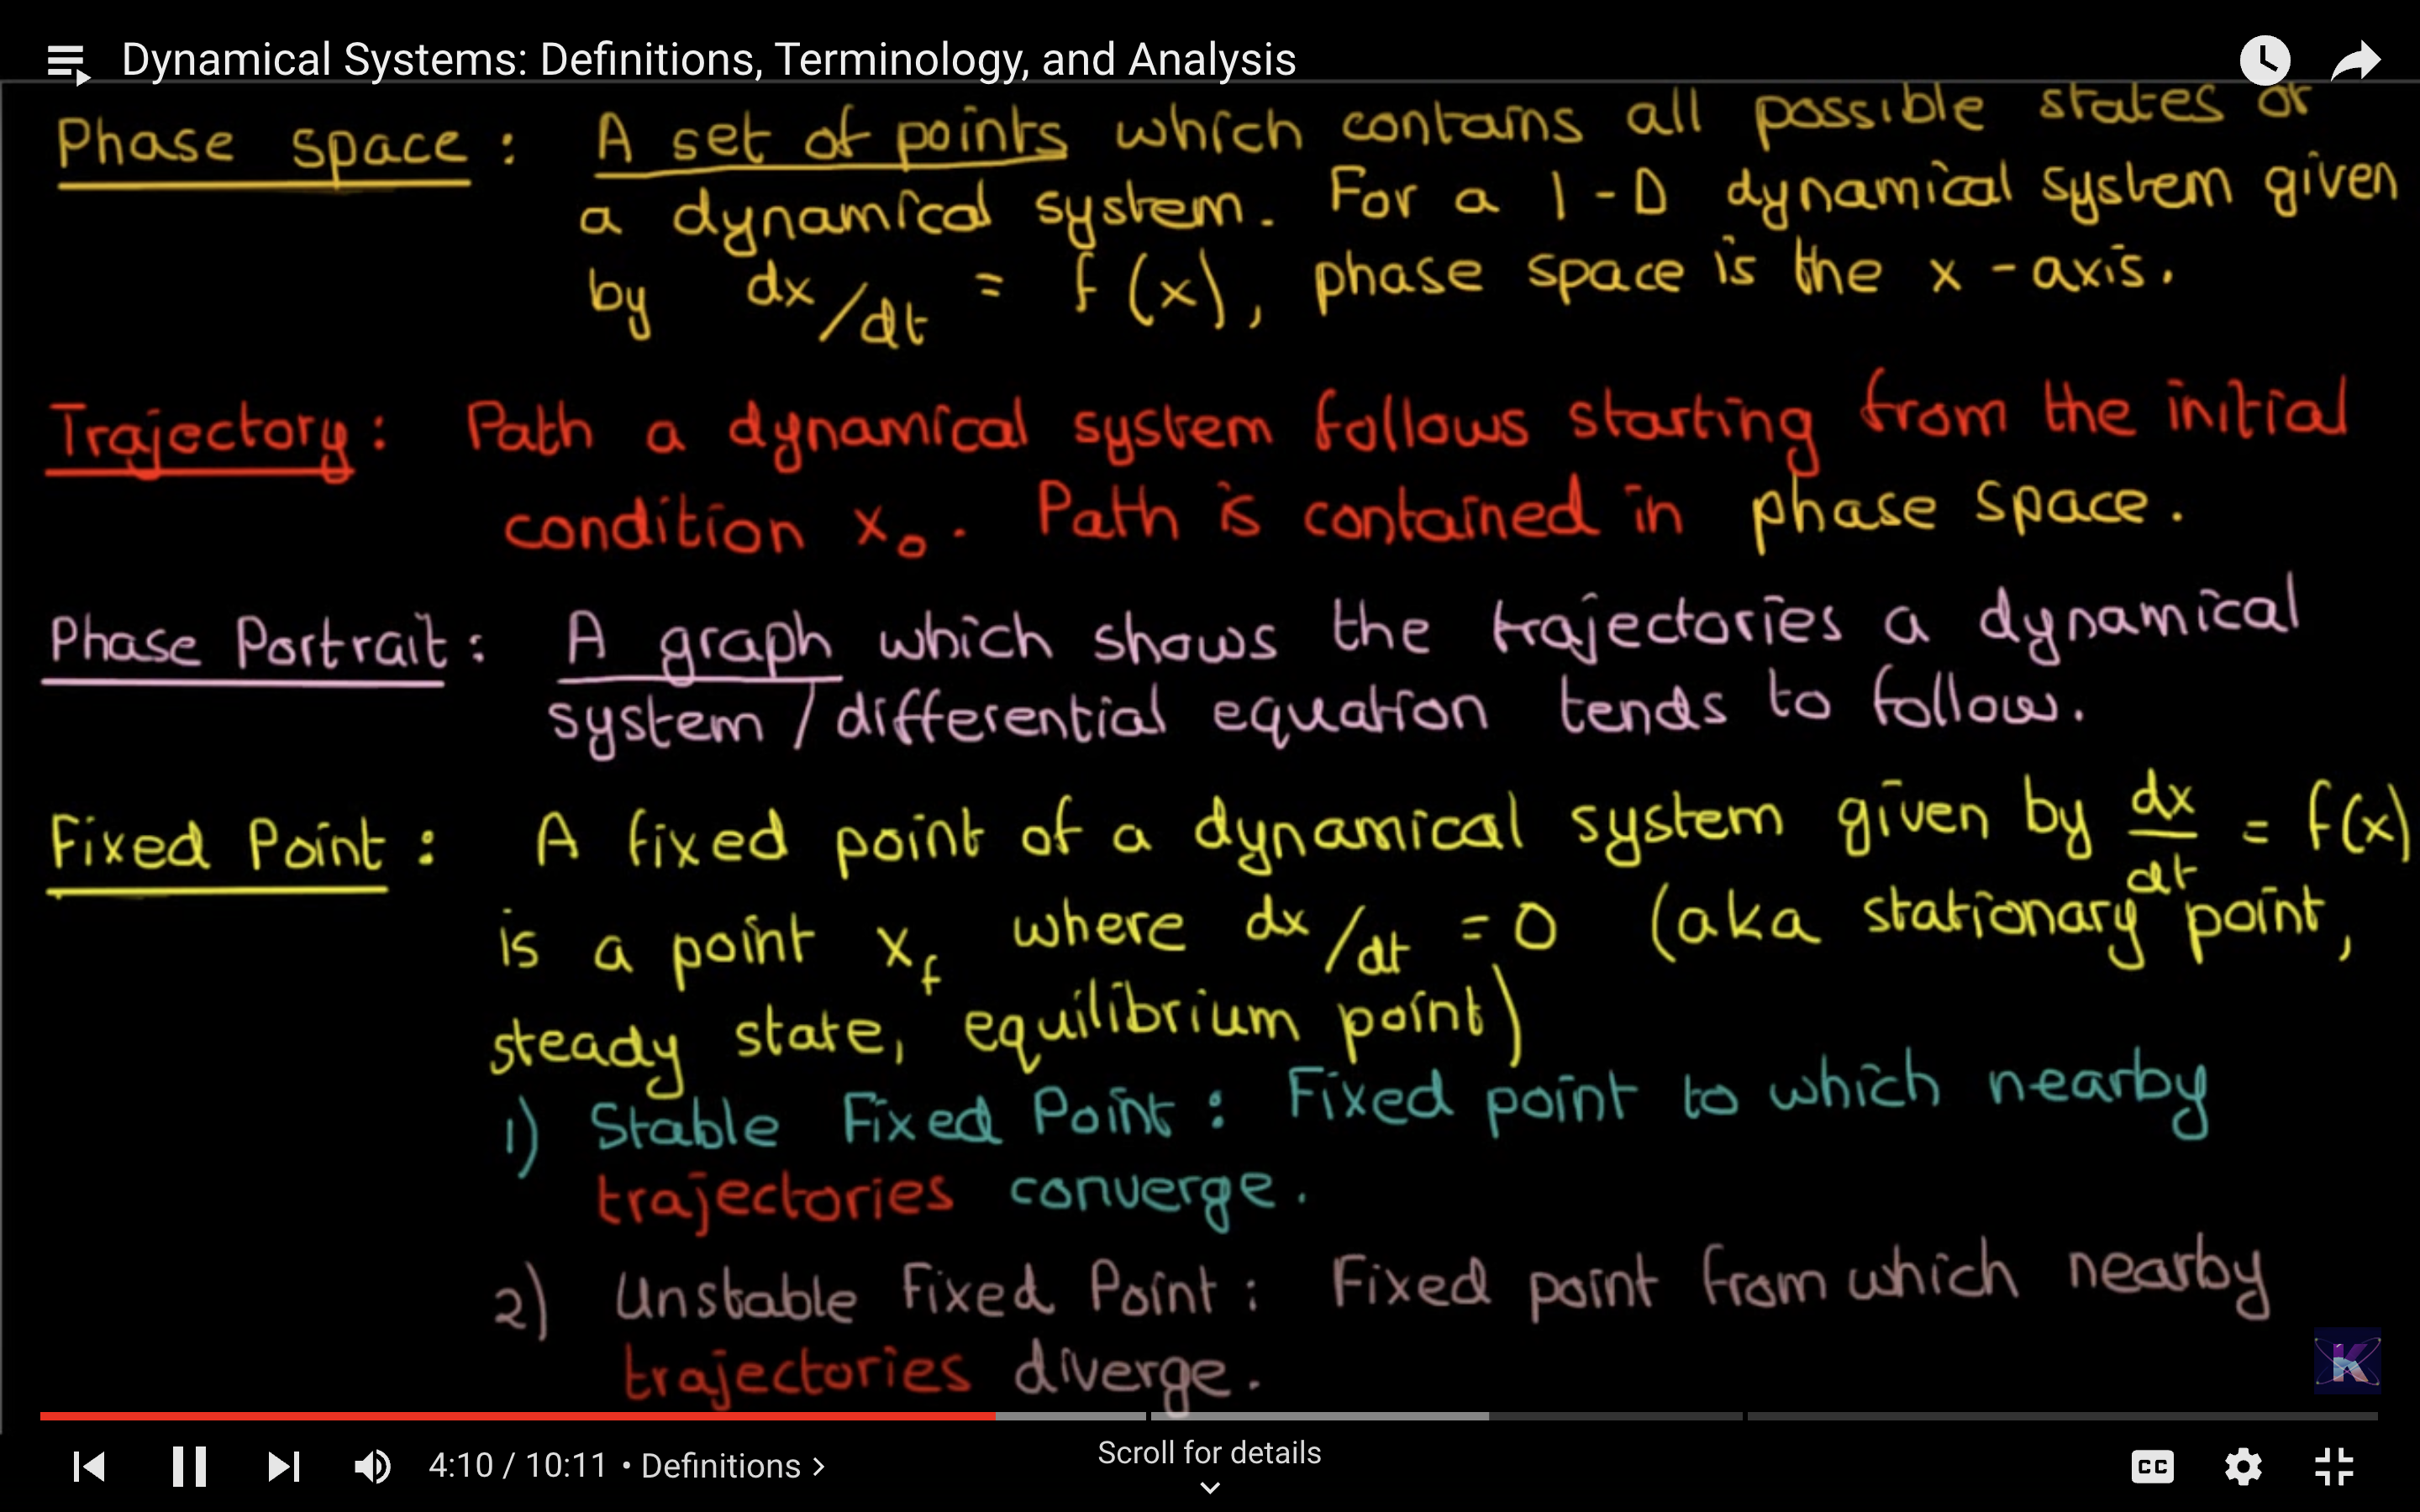 Dynamical Systems: Definitions, Terminology, and Analysis
Phase space : A set of points which contains all possible states of
a dynamical system. For a 1-D dynamical system given
by dx/dt = f(x), phase space is the x-axis.
Trajectory : Path a dynamical system follows starting from the initial
condition x₀. Path is contained in phase space.
Phase Portrait : A graph which shows the trajectories a dynamical
system / differential equation tends to follow.
Fixed Point : A fixed point of a dynamical system given by dx/dt = f(x)
is a point x_f where dx/dt = 0 (aka stationary point,
steady state, equilibrium point)
1) Stable Fixed Point : Fixed point to which nearby
trajectories converge.
2) Unstable Fixed Point : Fixed point from which nearby
trajectories diverge.
K
4:10 / 10:11 • Definitions >
Scroll for details
CC